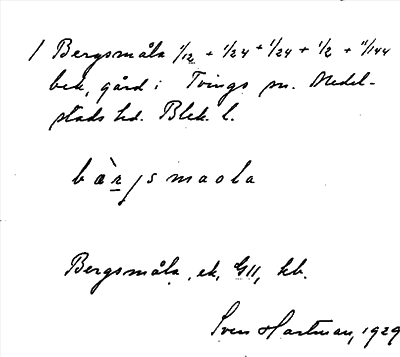 1 Bergsmåla 1/12 + 1/24 + 1/24 + 1/2 + 11/144
bek, gård i Tvings sn. Medel-
stads hd. Blek. l.
bærjsmaola
Bergsmåla, ek, GII, kb.
Sven Hartman, 1929